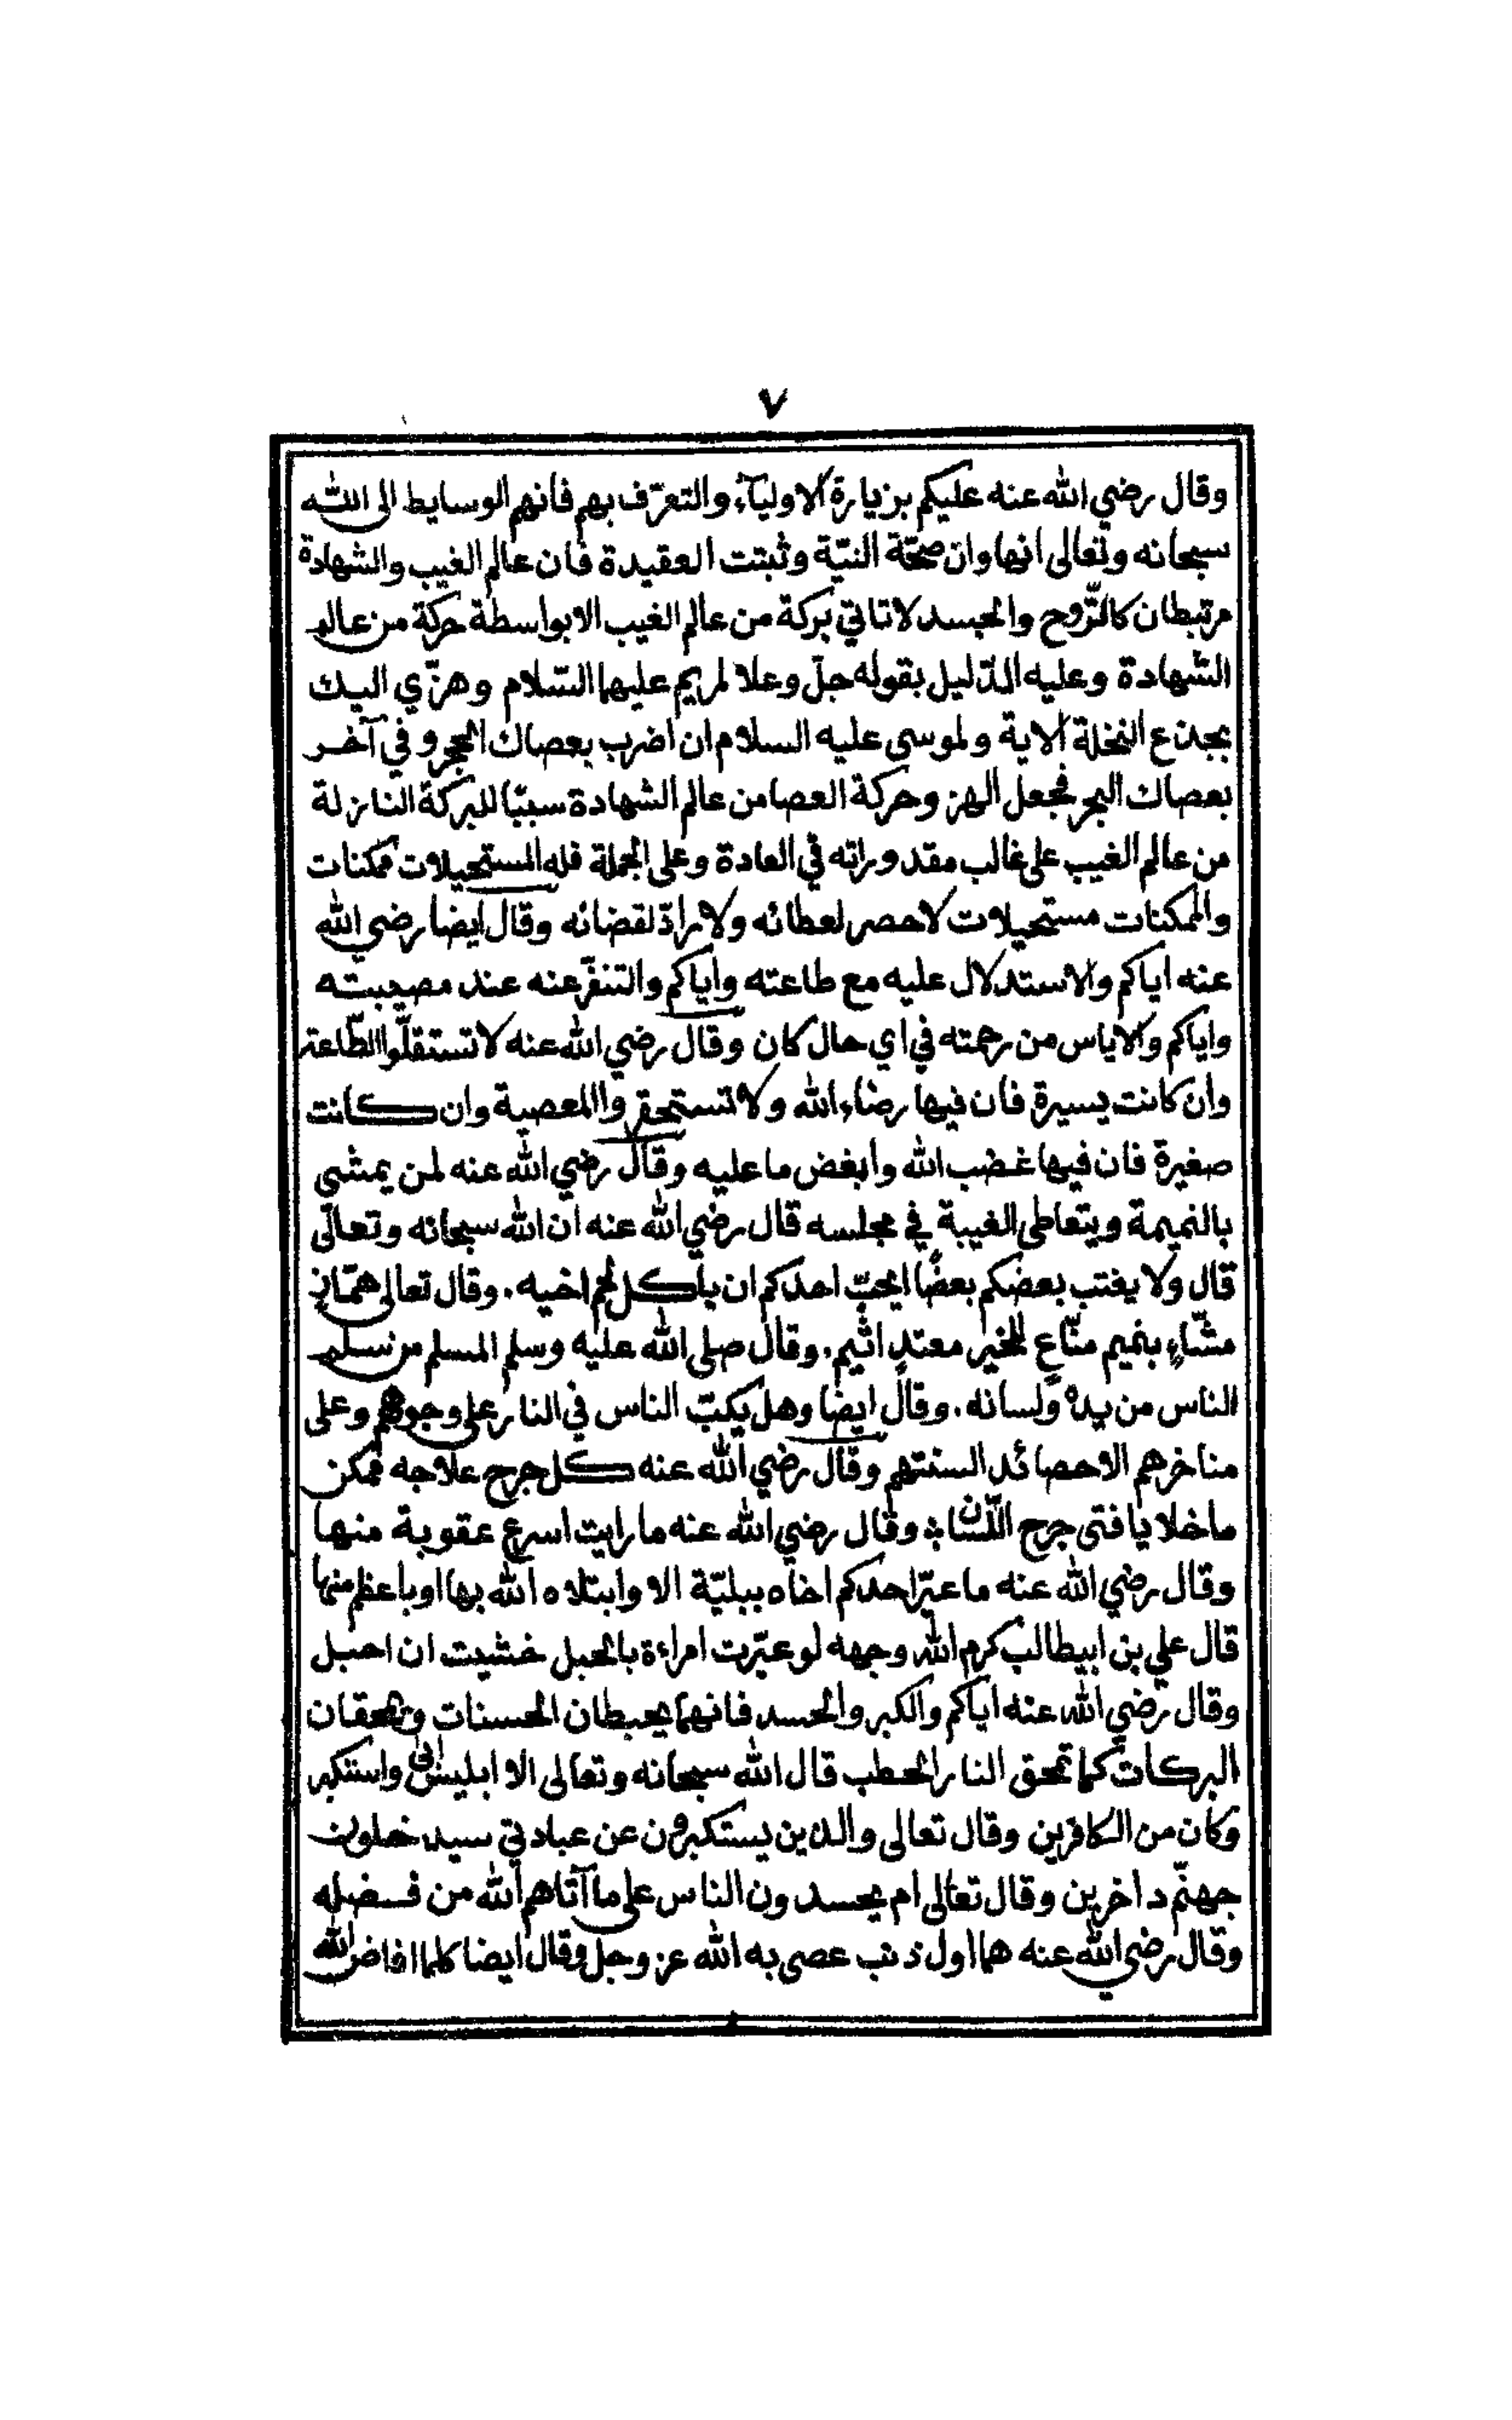 ٧
وقال رضي الله عنه عليكم بزيارة الاولياء والتعرّف بهم فانهم الوسايط الى الله
سبحانه وتعالى انها وان صحّة النيّة وثبتت العقيدة فان عالم الغيب والشهادة
مرتبطان كالرّوح والجسد لا تاتي بركة من عالم الغيب الا بواسطة حركة من عالم
الشهادة وعليه الدّليل بقوله جلّ وعلا لمريم عليها السّلام وهزّي اليك
بجذع النخلة الاية ولموسى عليه السلام ان اضرب بعصاك الحجر وفي آخر
بعصاك البحر فجعل الهز وحركة العصا من عالم الشهادة سببًا للبركة النازلة
من عالم الغيب على غالب مقدوراته في العادة وعلى الجملة فله المستحيلات ممكنات
والممكنات مستحيلات لا حصر لعطائه ولا رادّ لقضائه وقال ايضا رضي الله
عنه اياكم والاستدلال عليه مع طاعته واياكم والتنفّر عنه عند مصيبته
واياكم والاياس من رحمته في اي حال كان وقال رضي الله عنه لا تستقلّوا الطّاعة
وان كانت يسيرة فان فيها رضاء الله ولا تستحقروا المعصية وان كانت
صغيرة فان فيها غضب الله وابغض ما عليه وقال رضي الله عنه لمن يمشي
بالنميمة ويتعاطى الغيبة في مجلسه قال رضي الله عنه ان الله سبحانه وتعالى
قال ولا يغتب بعضكم بعضًا ايحبّ احدكم ان ياكل لحم اخيه. وقال تعالى همّاز
مشّاءٍ بنميم منّاعٍ للخير معتدٍ اثيم. وقال صلى الله عليه وسلم المسلم من سلم
الناس من يده ولسانه. وقال ايضا وهل يكبّ الناس في النار على وجوههم وعلى
مناخرهم الا حصائد السنتهم وقال رضي الله عنه كل جرح علاجه ممكن
ما خلا يا فتى جرح اللّسان وقال رضي الله عنه ما رايت اسرع عقوبة منها
وقال رضي الله عنه ما عيّر احدكم اخاه ببليّة الا وابتلاه الله بها او باعظم منها
قال علي بن ابيطالب كرم الله وجهه لو عيّرت امراءة بالحبل خشيت ان احبل
وقال رضي الله عنه اياكم والكبر والحسد فانهما يحبطان الحسنات ويمحقان
البركات كما تمحق النار الحطب قال الله سبحانه وتعالى الا ابليس ابى واستكبر
وكان من الكافرين وقال تعالى والذين يستكبرون عن عبادتي سيدخلون
جهنّم داخرين وقال تعالى ام يحسدون الناس على ما آتاهم الله من فضله
وقال رضي الله عنه هما اول ذنب عصي به الله عز وجل وقال ايضا كلما افاض الله